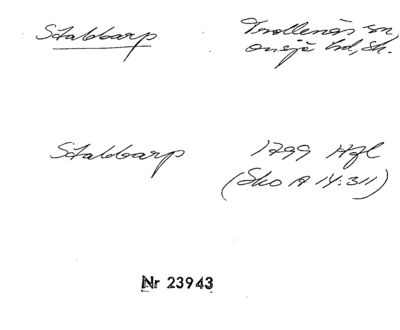 Stabbarp
Trollenäs sn,
Onsjö hd, Sk.
Stabbarp
1799 Hfl
(Sko A 14:311)
Nr 23943